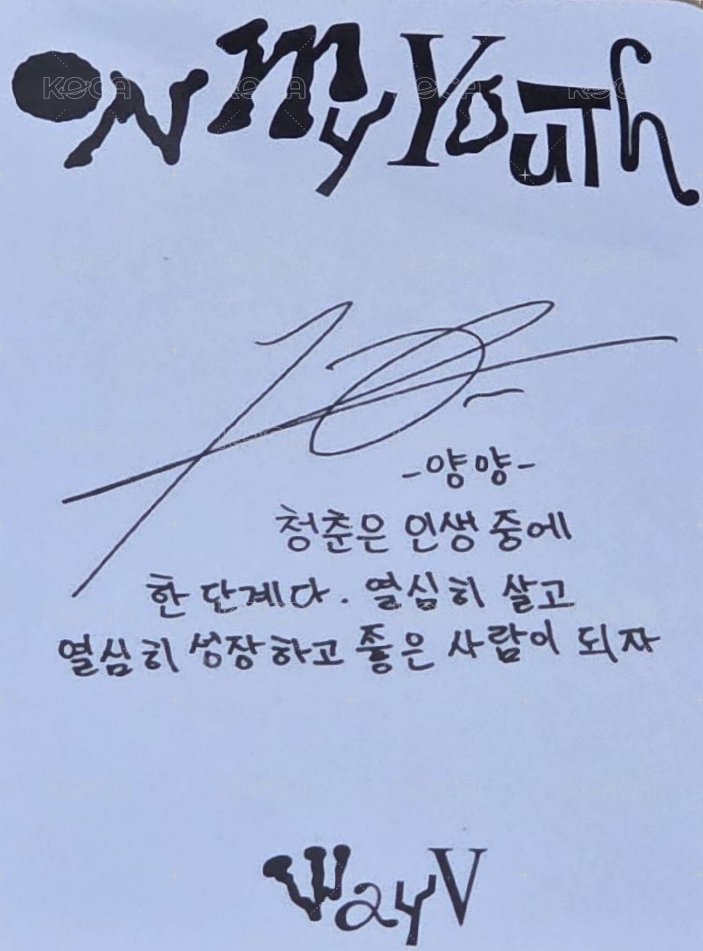 ON my YOUTH
-양양-
청춘은 인생 중에
한 단계다. 열심히 살고
열심히 성장하고 좋은 사람이 되자
WayV